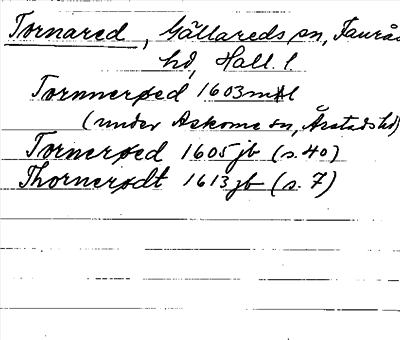 Tornared, Gällareds sn, Faurås
hd, Hall. l.
Tornnerød 1603 mtl
(under Askome sn, Årstads hd)
Tornerød 1605 jb (s. 40)
Thornerødt 1613 jb (s. 7)